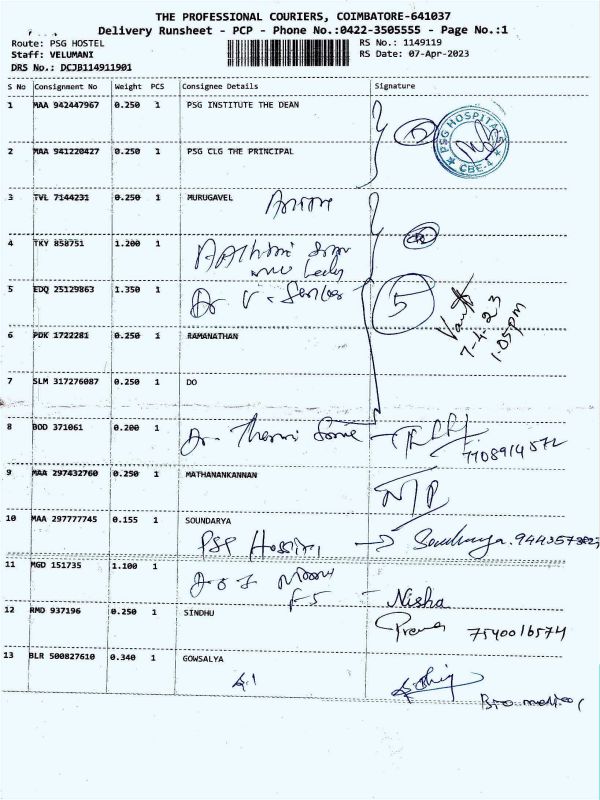 THE PROFESSIONAL COURIERS, COIMBATORE-641037
Delivery Runsheet - PCP - Phone No.:0422-3505555 - Page No.:1
Route: PSG HOSTEL
RS No.: 1149119
Staff: VELUMANI
RS Date: 07-Apr-2023
DRS No.: DCJB114911901
S No Consignment No Weight PCS Consignee Details Signature
1 MAA 942447967 0.250 1 PSG INSTITUTE THE DEAN
PSG HOSPITALS CBE-4
2 MAA 941220427 0.250 1 PSG CLG THE PRINCIPAL
3 TVL 7144231 0.250 1 MURUGAVEL
4 TKY 858751 1.200 1
5 EDQ 25129863 1.350 1 Dr V.
5
7-4-23
1.05pm
6 PDK 1722281 0.250 1 RAMANATHAN
7 SLM 317276087 0.250 1 DO
8 BOD 371061 0.200 1 Dr.
9 MAA 297432760 0.250 1 MATHANANKANNAN
N/P
10 MAA 297777745 0.155 1 SOUNDARYA
PSG
11 MGD 151735 1.100 1
F5 Nisha
12 RMD 937196 0.250 1 SINDHU
7540016574
13 BLR 500827610 0.340 1 GOWSALYA